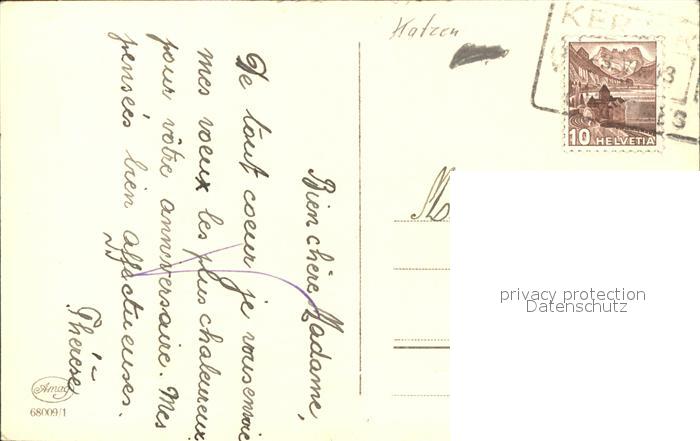 Katzen
KER
10 HELVETIA
Bien chère Madame,
De tout coeur je vous envoie
mes voeux les plus chaleureux
pour vôtre anniversaire. Mes
pensées bien affectueuses.
Thérèse
privacy protection
Datenschutz
Amag
68009/1